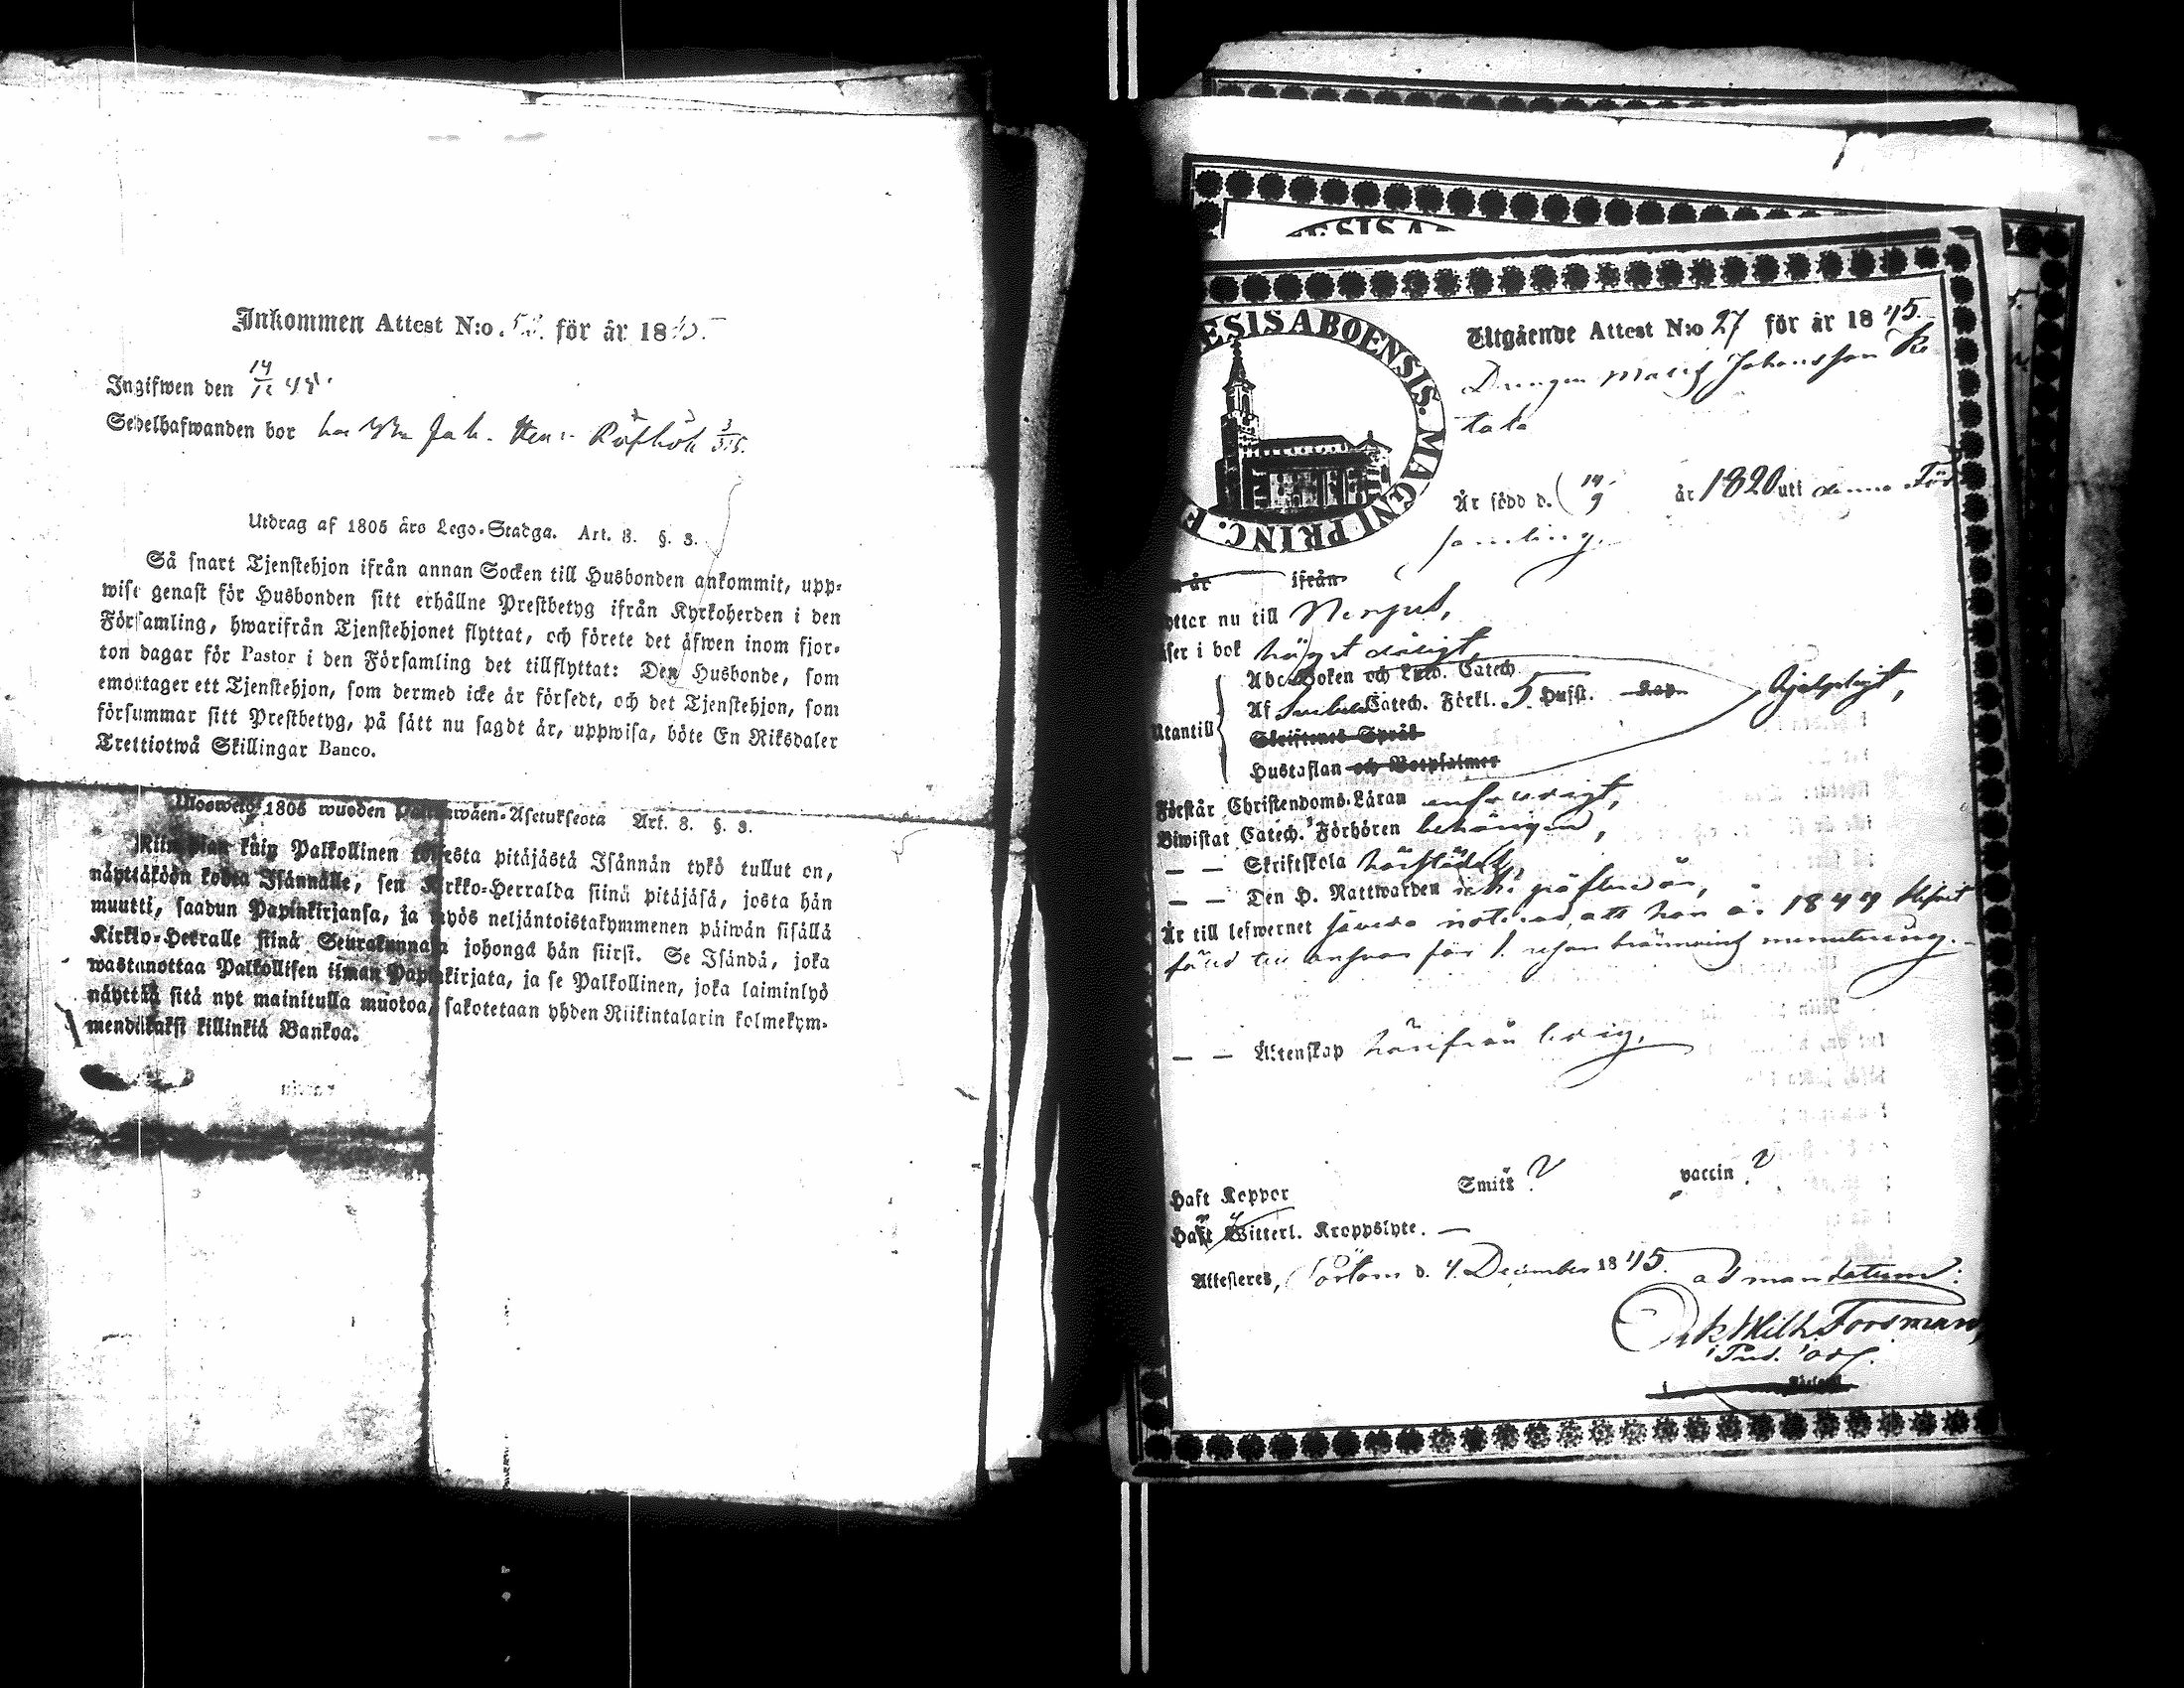 Inkommen Attest N:o 52. för år 1845.
Ingifwen den 14/12 45.
Sedelhafwanden bor hos
Utdrag af 1805 års Lego-Stadga. Art. 3. §. 3.
Så snart Tjenstehjon ifrån annan Socken till Husbonden ankommit, upp-
wise genast för Husbonden sitt erhållne Prestbetyg ifrån Kyrkoherden i den
Församling, hwarifrån Tjenstehjonet flyttat, och förete det äfwen inom fjor-
ton dagar för Pastor i den Församling det tillflyttat: Den Husbonde, som
emottager ett Tjenstehjon, som dermed icke är försedt, och det Tjenstehjon, som
försummar sitt Prestbetyg, på sätt nu sagdt är, uppwisa, böte En Riksdaler
Trettiotwå Skillingar Banco.
Uloswetö 1805 wuoden Palkkawäen-Asetuksesta Art. 3. §. 3.
Niin pian kuin Palkollinen toisesta pitäjästä Isännän tykö tullut on,
näyttäköön kohta Isännälle, sen Kirkko-Herralda siinä pitäjäsä, josta hän
muutti, saadun Papinkirjansa, ja myös neljäntoistakymmenen päiwän sisällä
Kirkko-Herralle siinä Seurakunnasa johonga hän siirsi. Se Isändä, joka
wastanottaa Palkollisen ilman Papinkirjata, ja se Palkollinen, joka laiminlyö
näyttää sitä nyt mainitulla muotoa, sakotetaan yhden Riikintalarin kolmekym-
mendäkaksi killinkiä Bankoa.
ESIS A
ESIS ABOENSIS. MAGNI PRINC. F
Utgående Attest N:o 27 för år 1845.
Drengen Matts Johansson Re
tala
År född d. 14/9 år 1820 uti denna För
samling.
år ifrån
yttar nu till Nerpes,
äser i bok högst dåligt,
Abc-Boken och Luth. Catech.
Af Svebelii Catech. Förkl. 5. Hufst. Kap. hjelpligt,
Utantill
Skriftenes Språk
Hustaflan och Botpsalmer
Förstår Christendoms-Läran enfaldigt,
Biwistat Catech. Förhören behörigen,
— — Skriftskola härstädes,
— — Den H. Nattwarden
Är till lefwernet att han år 1844 blifvit
fälld till answar för 1. resan bränvins minutering.
— — Äktenskap härifrån ledig,
Haft Koppor Smitt ? vaccin ?
Haft Witterl. Kroppslyte. —
Attesteras, Pörtom d. 4. December 1845. ad mandatum:
Wilh. Forsman,